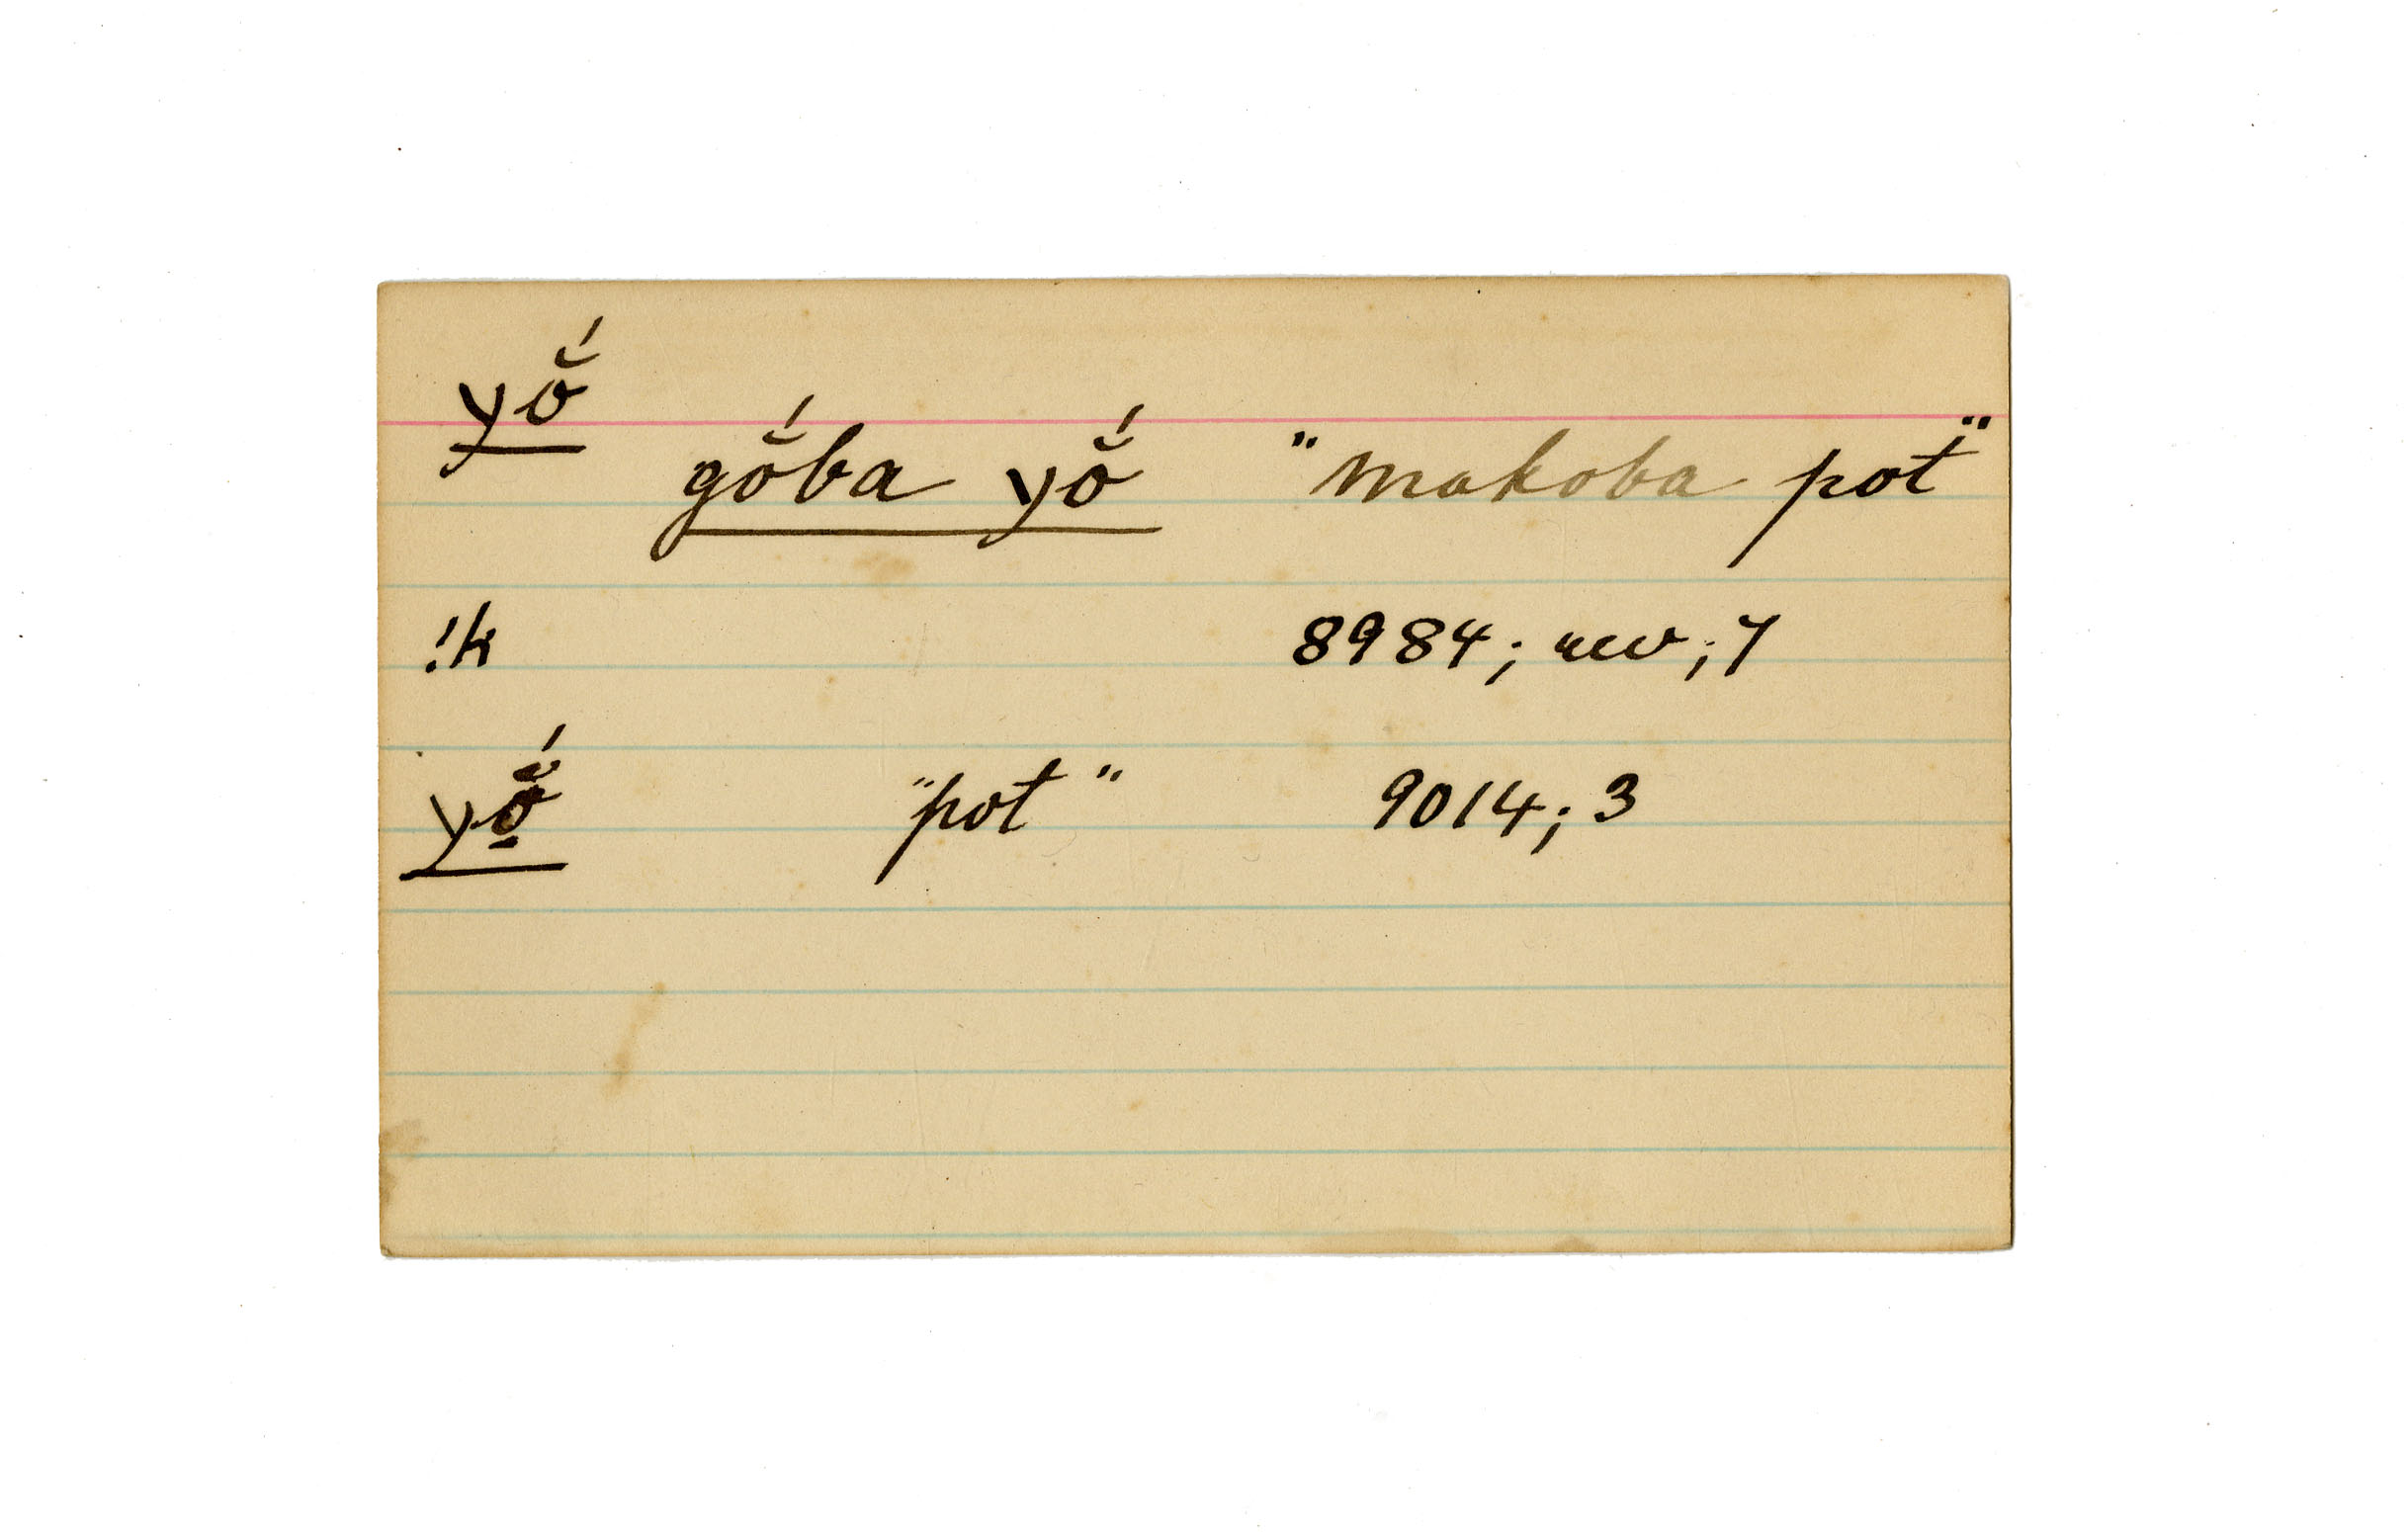 yŏ́
gŏ́ba yŏ́ "makoba pot"
!k 8984; rev; 7
yŏ̱́ "pot" 9014; 3